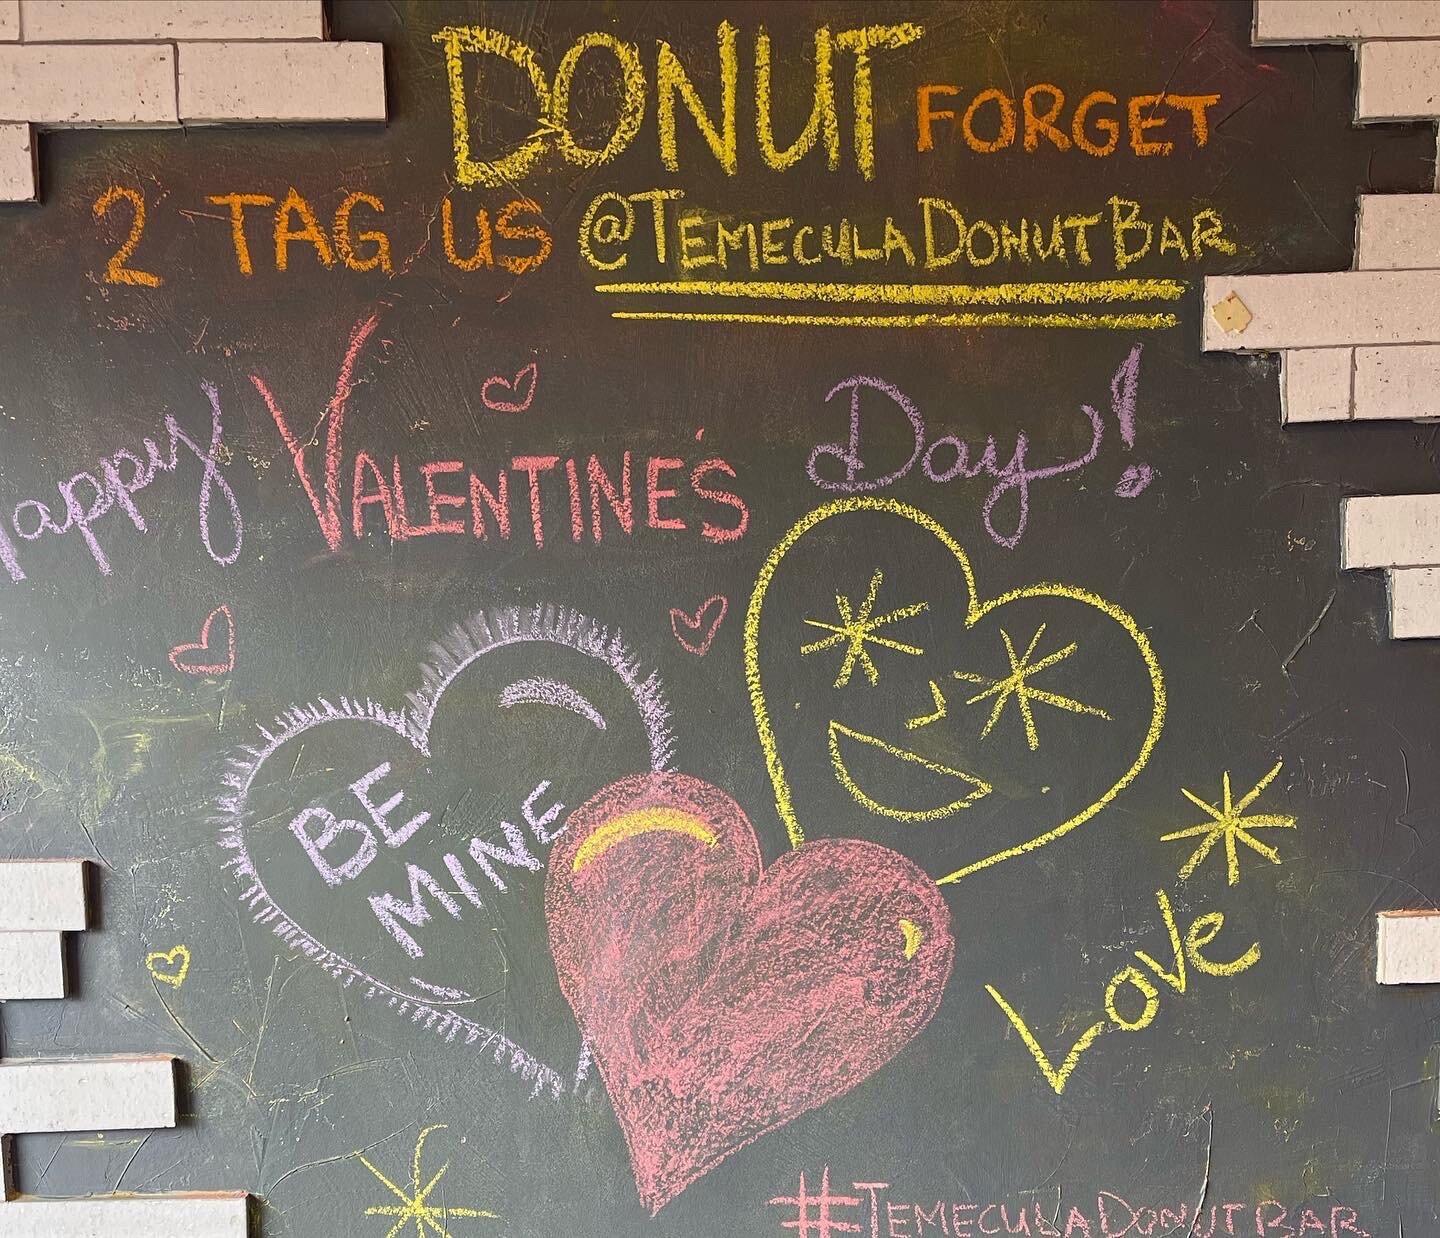 DONUT FORGET
2 TAG US @TEMECULADONUTBAR
Happy VALENTINE'S Day!
BE
MINE
LOVE
#TEMECULADONUTBAR